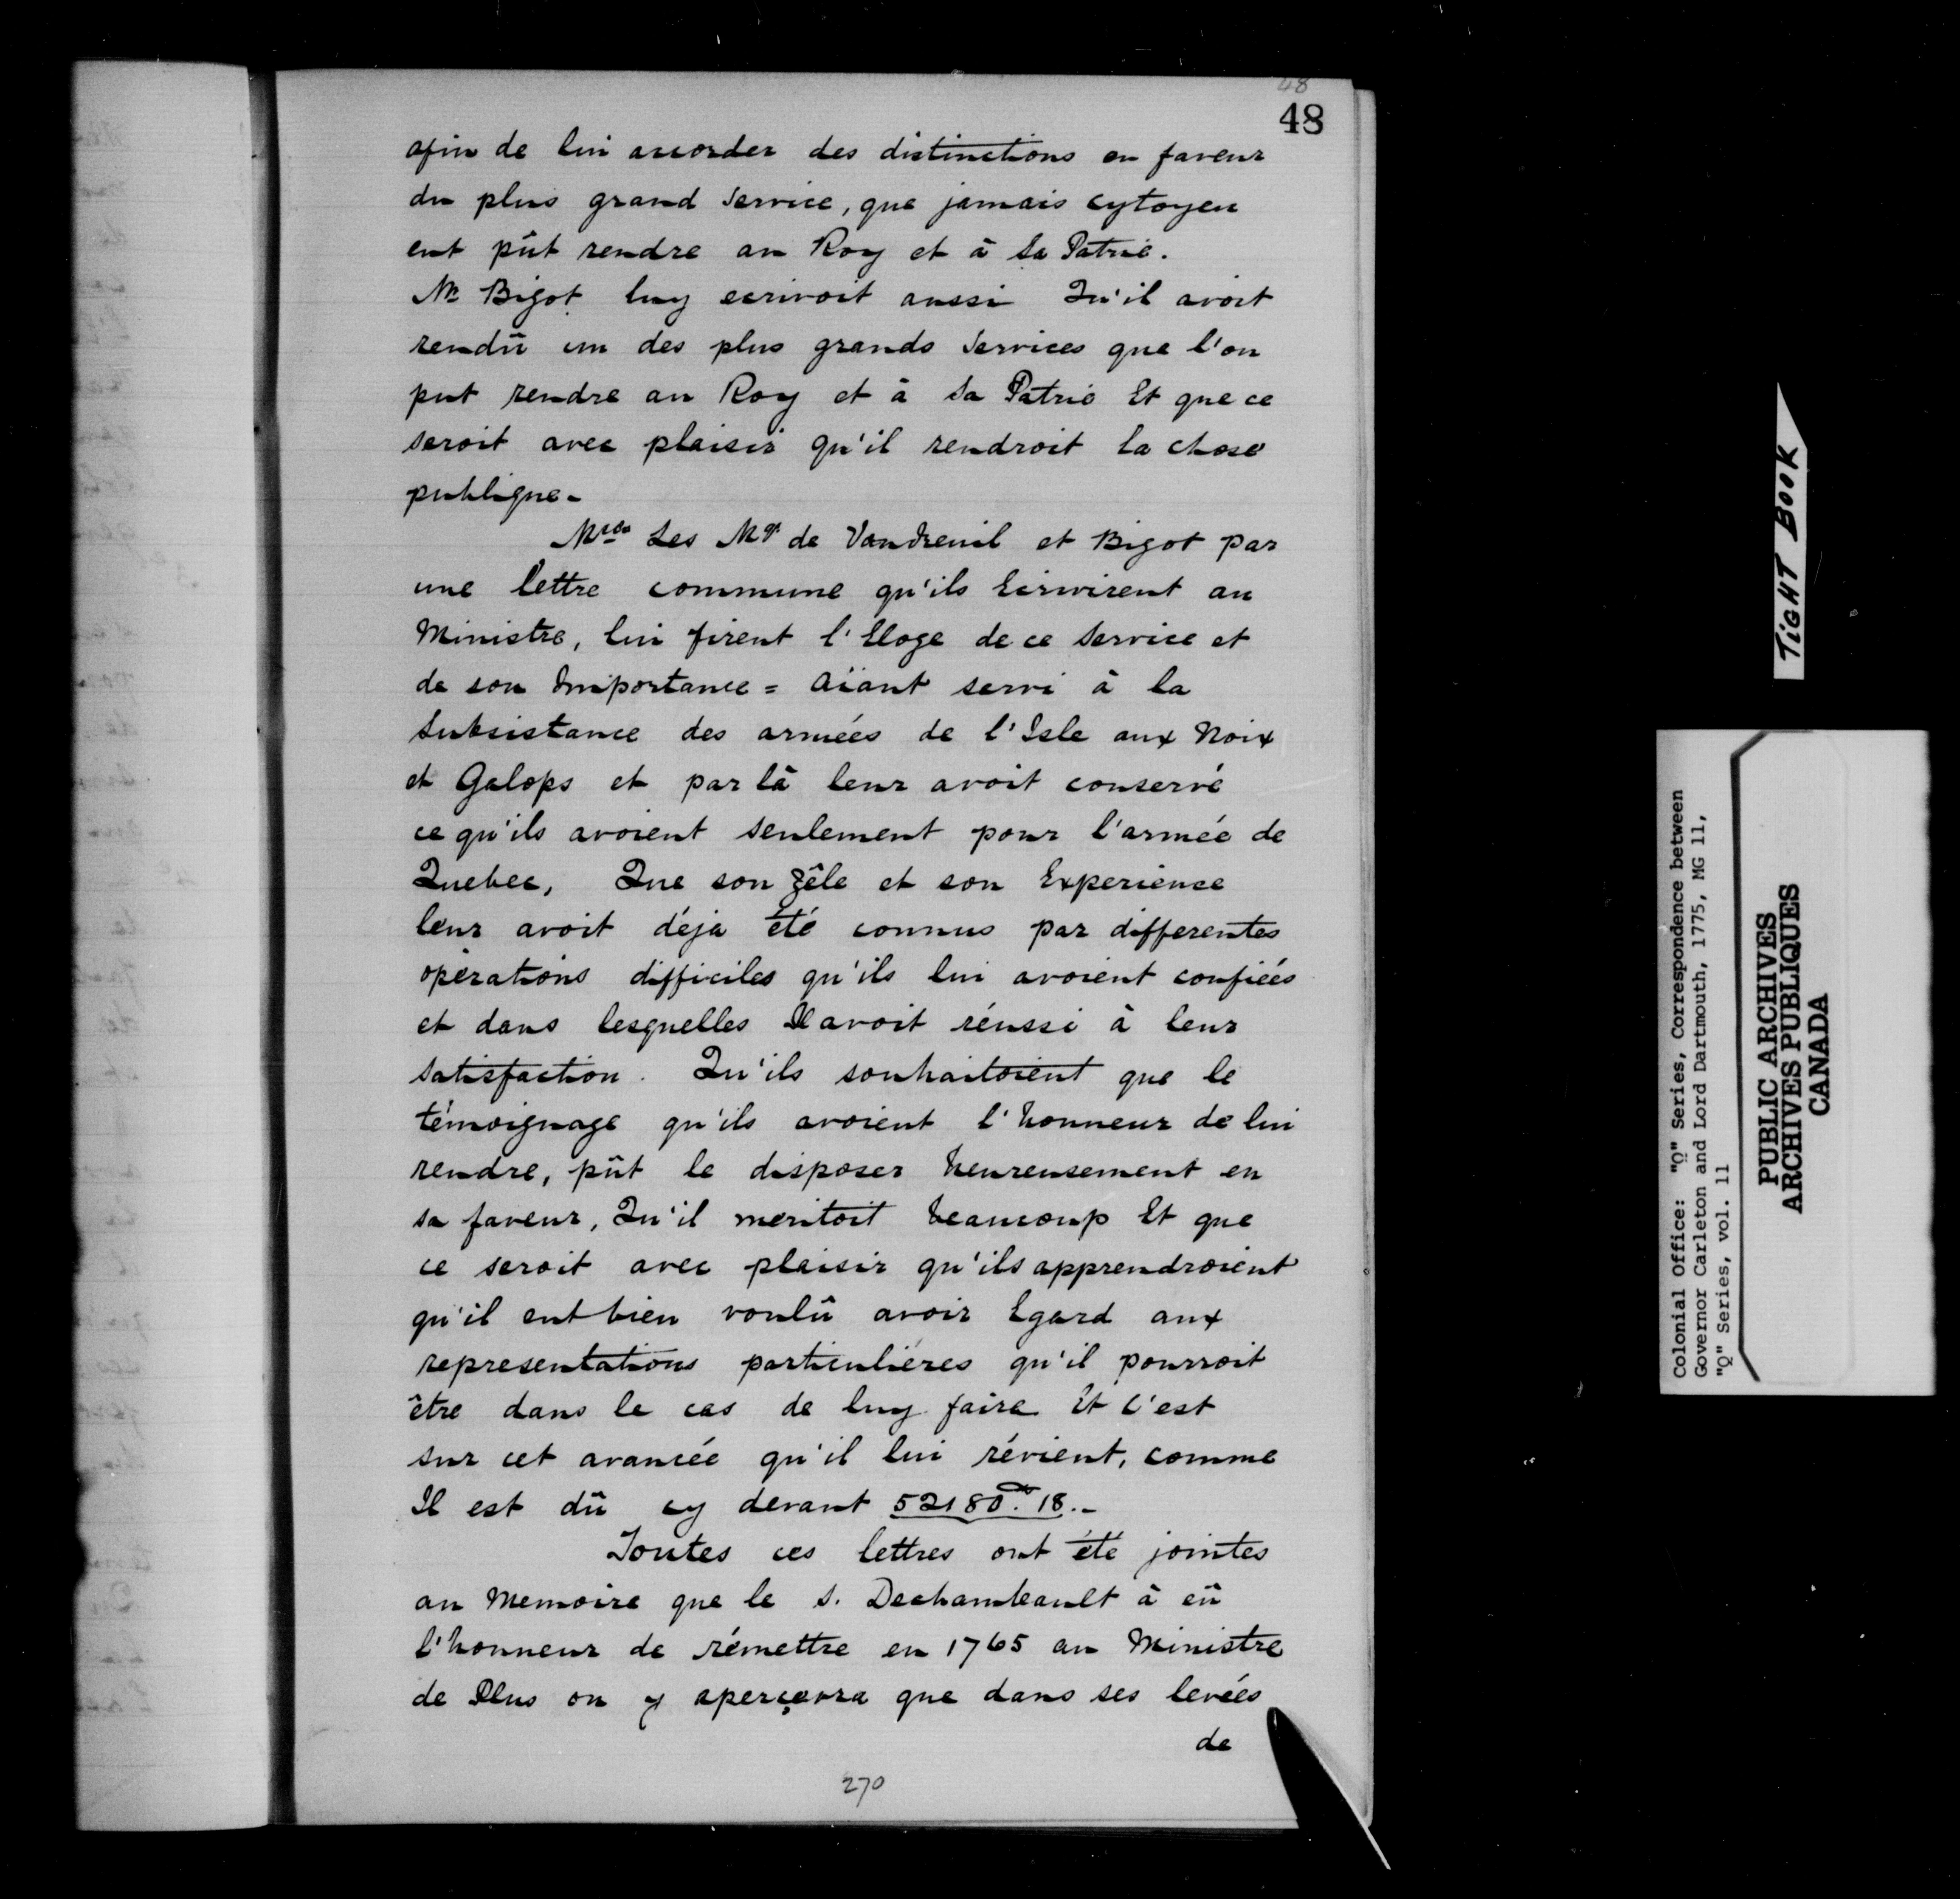 48
48
afin de lui accorder des distinctions en faveur
du plus grand service, que jamais cytoyen
eut pût rendre au Roy et à sa Patrie.
Mr Bigot luy ecrivoit aussi Qu'il avoit
rendû un des plus grands services que l'on
put rendre au Roy et à sa Patrie Et que ce
seroit avec plaisir qu'il rendroit la chose
publique.
Les Mrs de Vaudreuil et Bigot par
une lettre commune qu'ils Ecrivirent au
Ministre, lui firent l'Eloge de ce service et
de son Importance = Aïant servi à la
subsistance des armées de l'Isle aux Noix
et Galops et par là leur avoit conservé
ce qu'ils avoient seulement pour l'armée de
Quebec, Que son zêle et son Experience
leur avoit déja été connus par differentes
opérations difficiles qu'ils lui avoient confiées
et dans lesquelles Il avoit réussi à leur
satisfaction. Qu'ils souhaitoient que le
témoignage qu'ils avoient l'honneur de lui
rendre, pût le disposer heureusement en
sa faveur, Qu'il meritoit beaucoup Et que
ce seroit avec plaisir qu'ils apprendroient
qu'il eut bien voulû avoir Egard aux
representations particuliéres qu'il pourroit
être dans le cas de luy faire Et c'est
sur cet avancée qu'il lui révient, comme
Il est dû cy devant 52180. 18.-
Toutes ces lettres ont été jointes
au Memoire que le S. Dechambeault à eû
l'honneur de rémettre en 1765 au Ministre
de Plus on y aperçevra que dans ses levées
de
270
TIGHT BOOK
Colonial Office: "Q" Series, Correspondence between
Governor Carleton and Lord Dartmouth, 1775, MG 11,
"Q" Series, vol. 11
PUBLIC ARCHIVES
ARCHIVES PUBLIQUES
CANADA